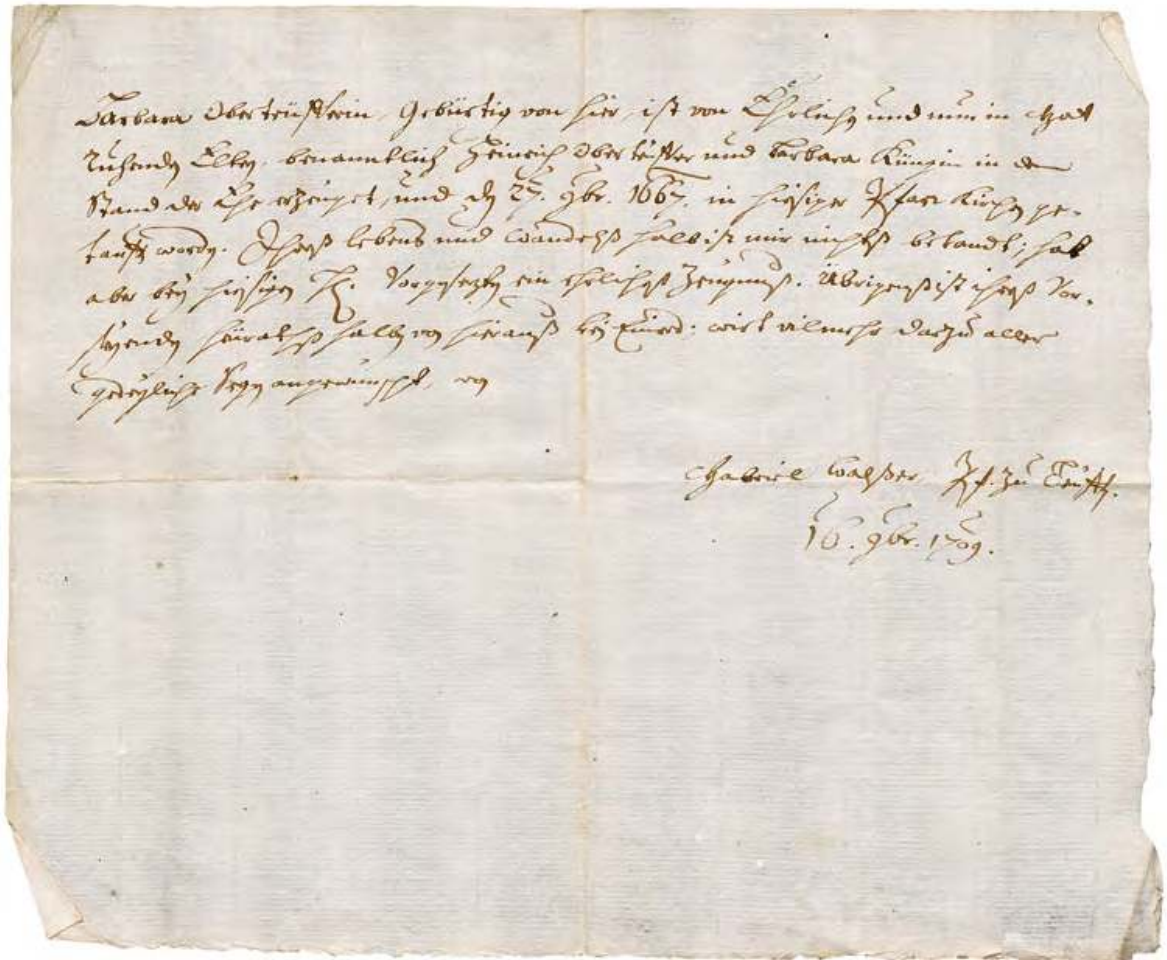 Barbara Oberteüfferin, Gebürtig von hier, ist von Ehrlichen und nun in Gott
Ruhenden Elteren, benanntlich Heinrich Oberteüffer und Barbara Küngin in dem
Stand der Ehe erzeuget, und den 27. 9br. 1667. in hiesiger Pfarr Kirchen ge-
taufft worden. Ihreß lebens und wandelß halb ist mir nichtß bekandt; hat
aber bey hiesigen H. Vorgesezten ein ehrlicheß Zeugnuß. Übrigenß ist ihreß Vor-
heürathß halben von hierauß kein wirt vilmehr darzu aller
gedeyliche Segen angewünscht, von
Gabriel Walßer Pf. zu Teüffen.
16. 9br. 1709.